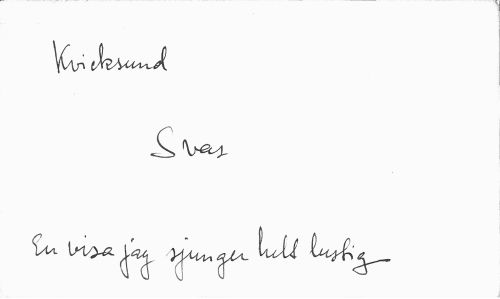 Kvicksund
Svar
En visa jag sjunger helt lustig